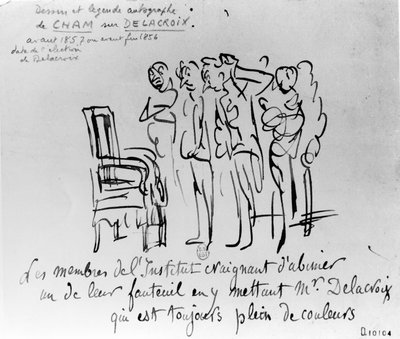 Dessin et légende autographe
de CHAM sur DELACROIX.
avant 1857 ou avant fin 1856
date de l'élection
de Delacroix
Les membres de l'Institut craignant d'abimer
un de leur fauteuil en y mettant Mr. Delacroix
qui est toujours plein de couleurs
D10104